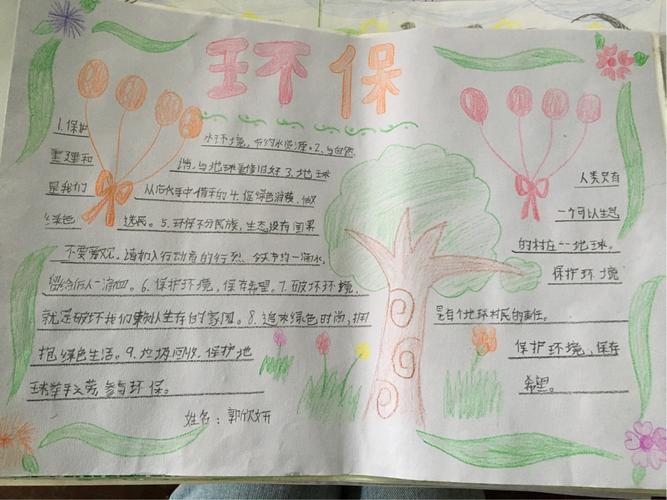 环保
1. 保护 水环境，节约水资源。2. 与自然
重建和 谐，与地球重修旧好 3. 地球
是我们 从后代手中借来的 4. 促绿色消费，做
绿色 选民。5. 环保不分民族，生态没有国界
不要等，请加入行动者的行列 今天节约一滴水，
留给后人一滴血。6. 保护环境，保存希望。7. 破坏环境，
就是破坏我们赖以生存的家园。8. 追求绿色时尚，拥
抱绿色生活。9. 垃圾回收，保护地
球举手之劳 参与环保。
姓名：郭欣妍
人类只有
一个可以生息
的村庄一地球。
保护环境
是每个地球村民的责任。
保护环境，保存
希望。